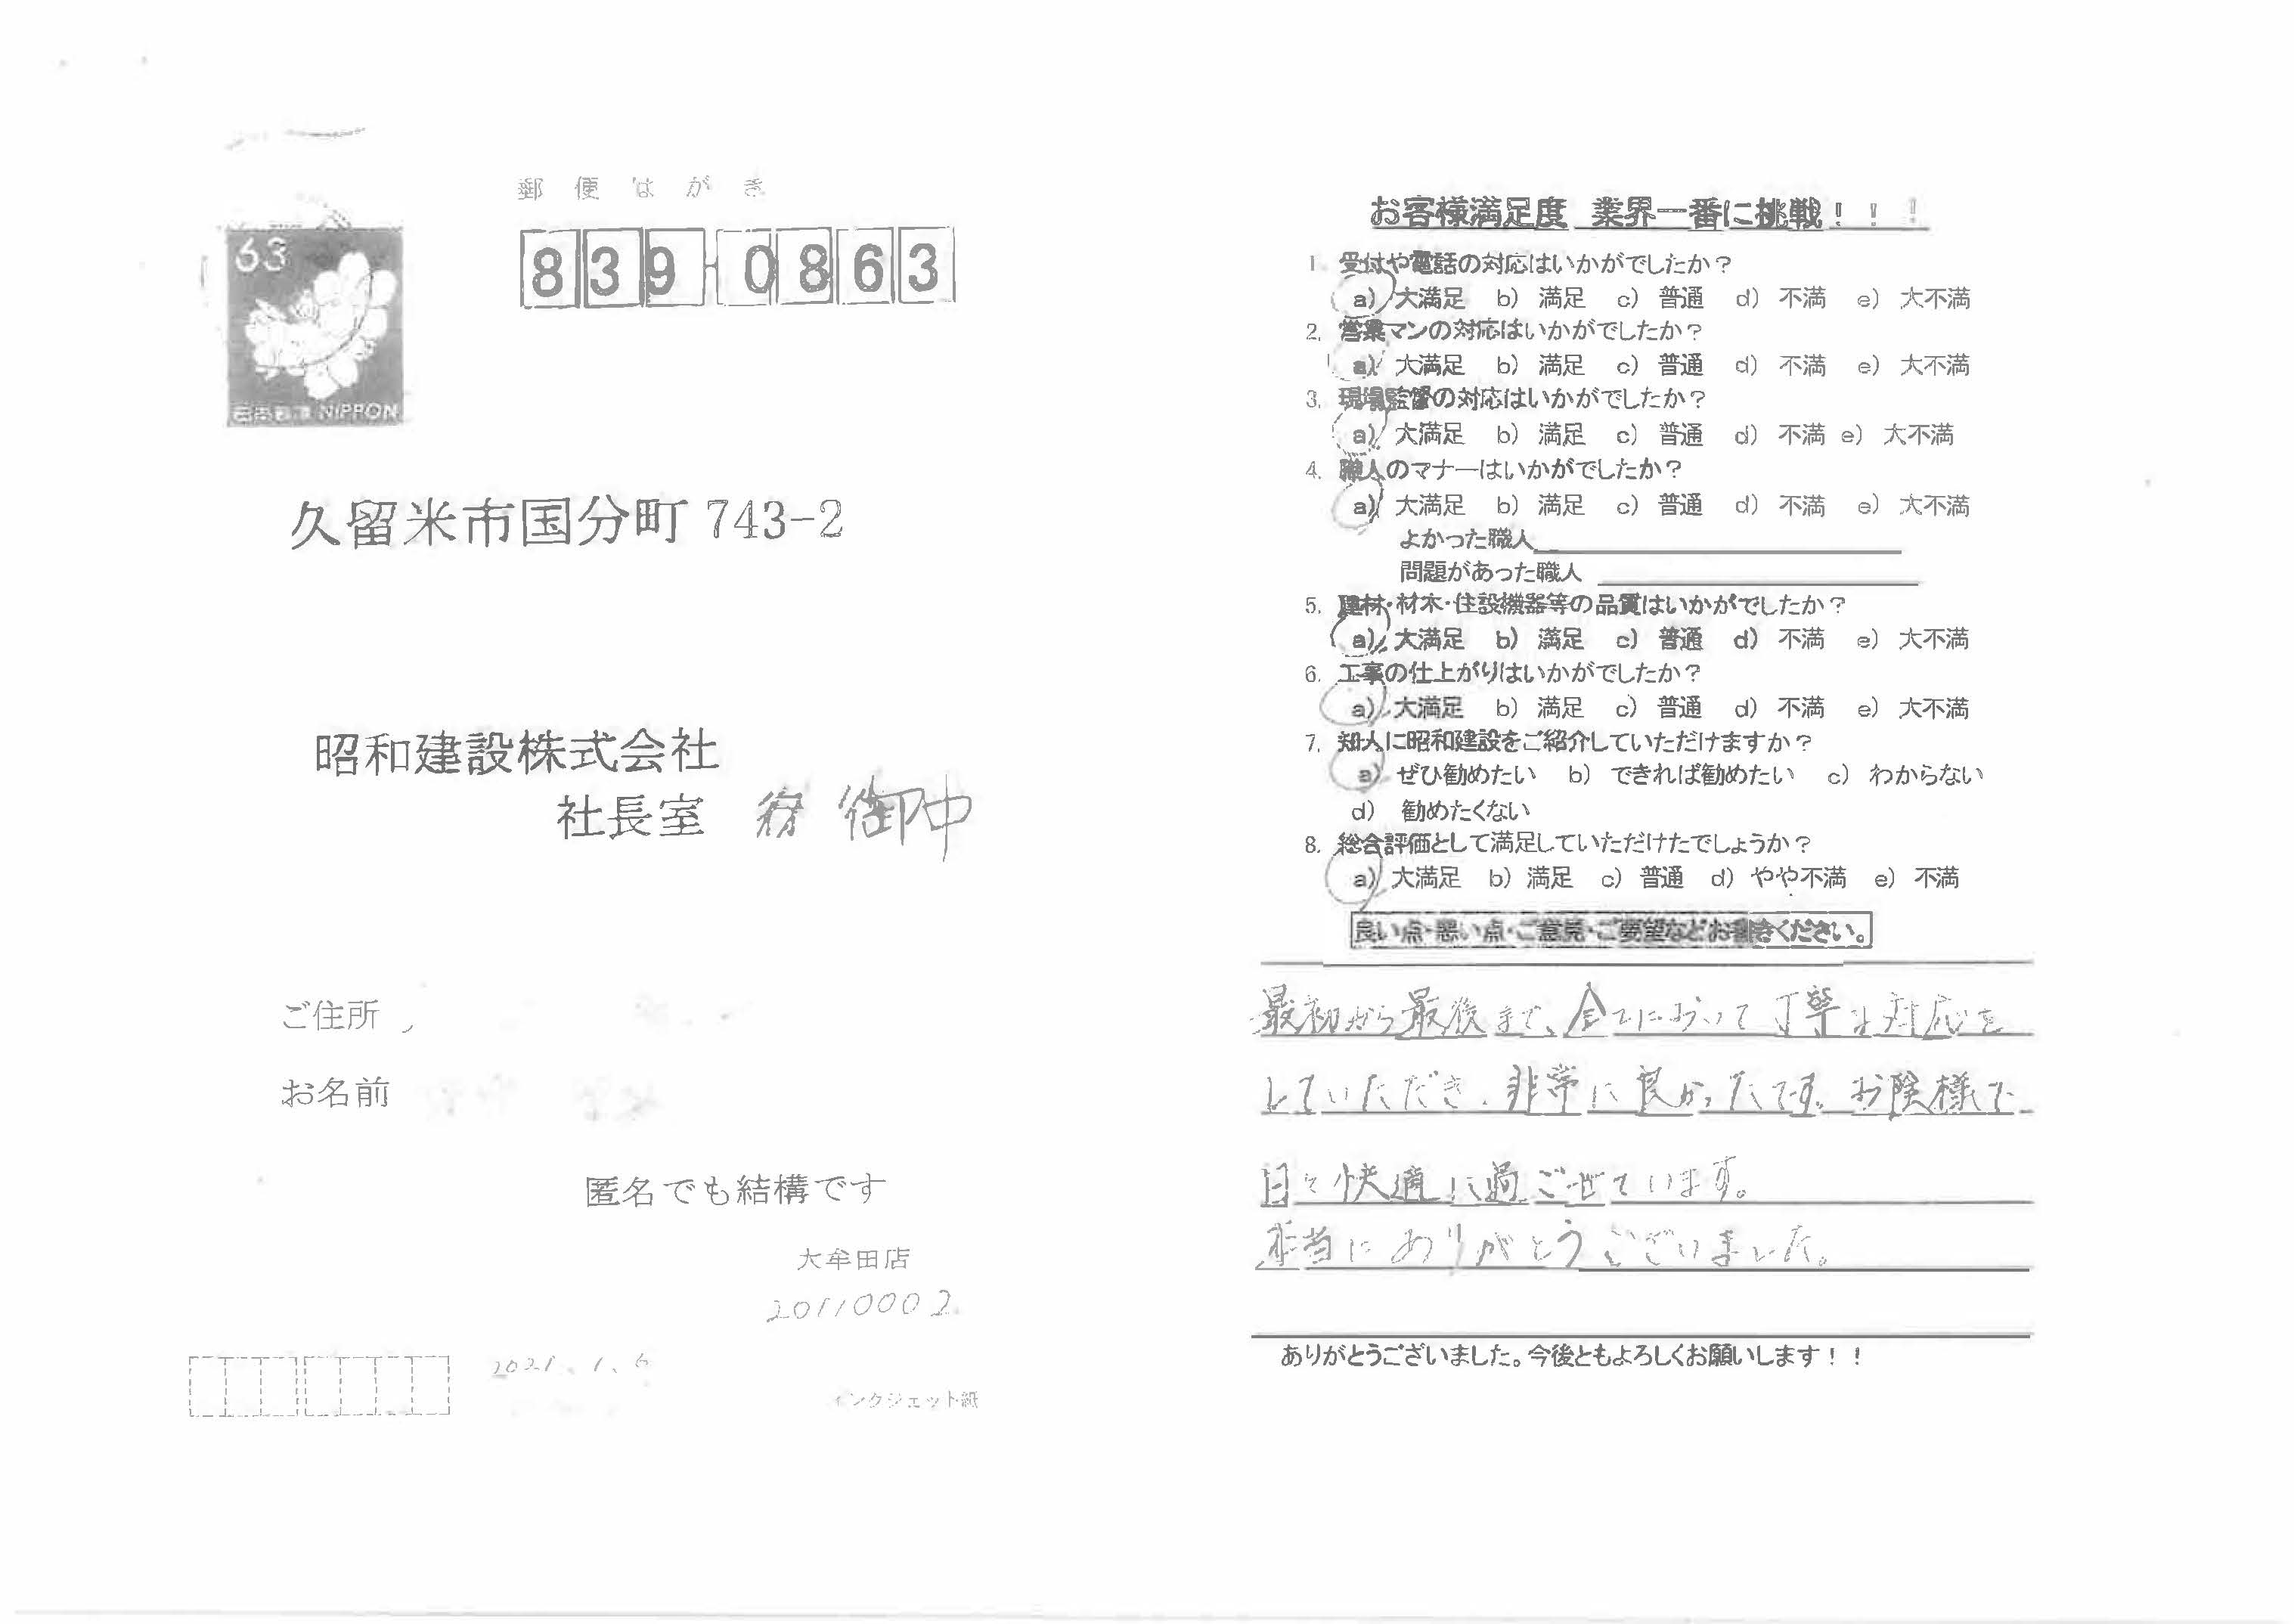 郵便はがき
63
NIPPON
839-0863
久留米市国分町 743-2
昭和建設株式会社
社長室 御中
ご住所
お名前
匿名でも結構です
大牟田店
20110002
2021、1、6
インクジェット紙
お客様満足度 業界一番に挑戦！！！
1. 受付や電話の対応はいかがでしたか？
a) 大満足 b) 満足 c) 普通 d) 不満 e) 大不満
2. 営業マンの対応はいかがでしたか？
a) 大満足 b) 満足 c) 普通 d) 不満 e) 大不満
3. 現場監督の対応はいかがでしたか？
a) 大満足 b) 満足 c) 普通 d) 不満 e) 大不満
4. 職人のマナーはいかがでしたか？
a) 大満足 b) 満足 c) 普通 d) 不満 e) 大不満
よかった職人
問題があった職人
5. 建材・材木・住設機器等の品質はいかがでしたか？
a) 大満足 b) 満足 c) 普通 d) 不満 e) 大不満
6. 工事の仕上がりはいかがでしたか？
a) 大満足 b) 満足 c) 普通 d) 不満 e) 大不満
7. 知人に昭和建設をご紹介していただけますか？
a) ぜひ勧めたい b) できれば勧めたい c) わからない
d) 勧めたくない
8. 総合評価として満足していただけたでしょうか？
a) 大満足 b) 満足 c) 普通 d) やや不満 e) 不満
良い点・悪い点・ご意見・ご要望などお書きください。
最初から最後まで、全てにおいて丁寧な対応を
していただき、非常に良かったです。お陰様で
日々快適に過ごせています。
本当にありがとうございました。
ありがとうございました。今後ともよろしくお願いします！！